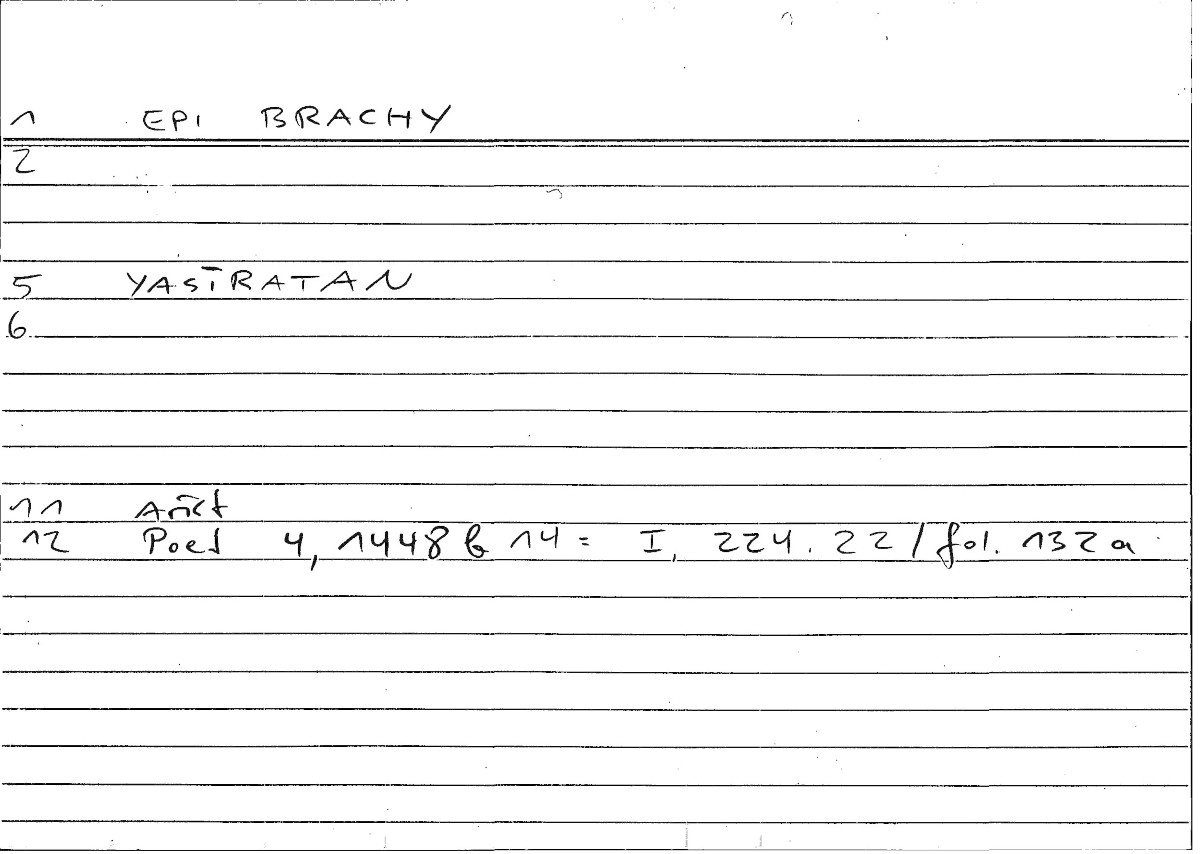 1 EPI BRACHY
2
5 YASĪRATAN
6
11 Arist
12 Poet 4, 1448 b 14 = I, 224.22 / fol. 132 a